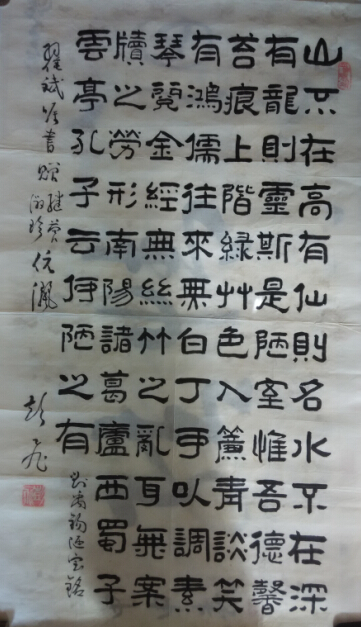 山不在高有仙則名水不在深
有龍則靈斯是陋室惟吾德馨
苔痕上階緑艸色入簾青談笑
有鴻儒往來無白丁可以調素
琴閱金經無絲竹之亂耳無案
牘之勞形南陽諸葛廬西蜀子
雲亭孔子云何陋之有
劉禹錫陋室銘
書贈
伉儷